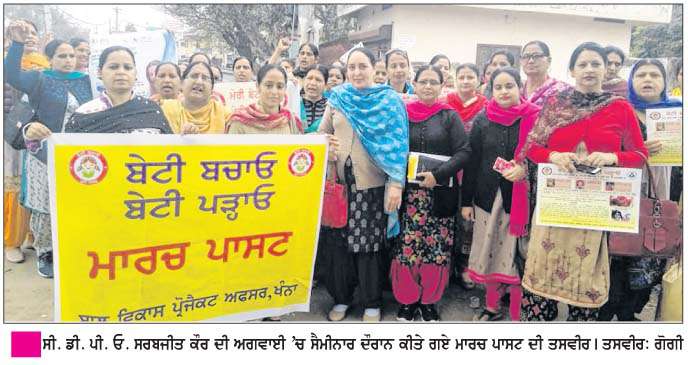 ਮੇਰੀ
ਬੇਟੀ ਬਚਾਓ
ਬੇਟੀ ਪੜ੍ਹਾਓ
ਮਾਰਚ ਪਾਸਟ
ਬਾਲ ਵਿਕਾਸ ਪ੍ਰੋਜੈਕਟ ਅਫਸਰ, ਖੰਨਾ
ਸੀ. ਡੀ. ਪੀ. ਓ. ਸਰਬਜੀਤ ਕੌਰ ਦੀ ਅਗਵਾਈ ’ਚ ਸੈਮੀਨਾਰ ਦੌਰਾਨ ਕੀਤੇ ਗਏ ਮਾਰਚ ਪਾਸਟ ਦੀ ਤਸਵੀਰ। ਤਸਵੀਰ: ਗੋਗੀ